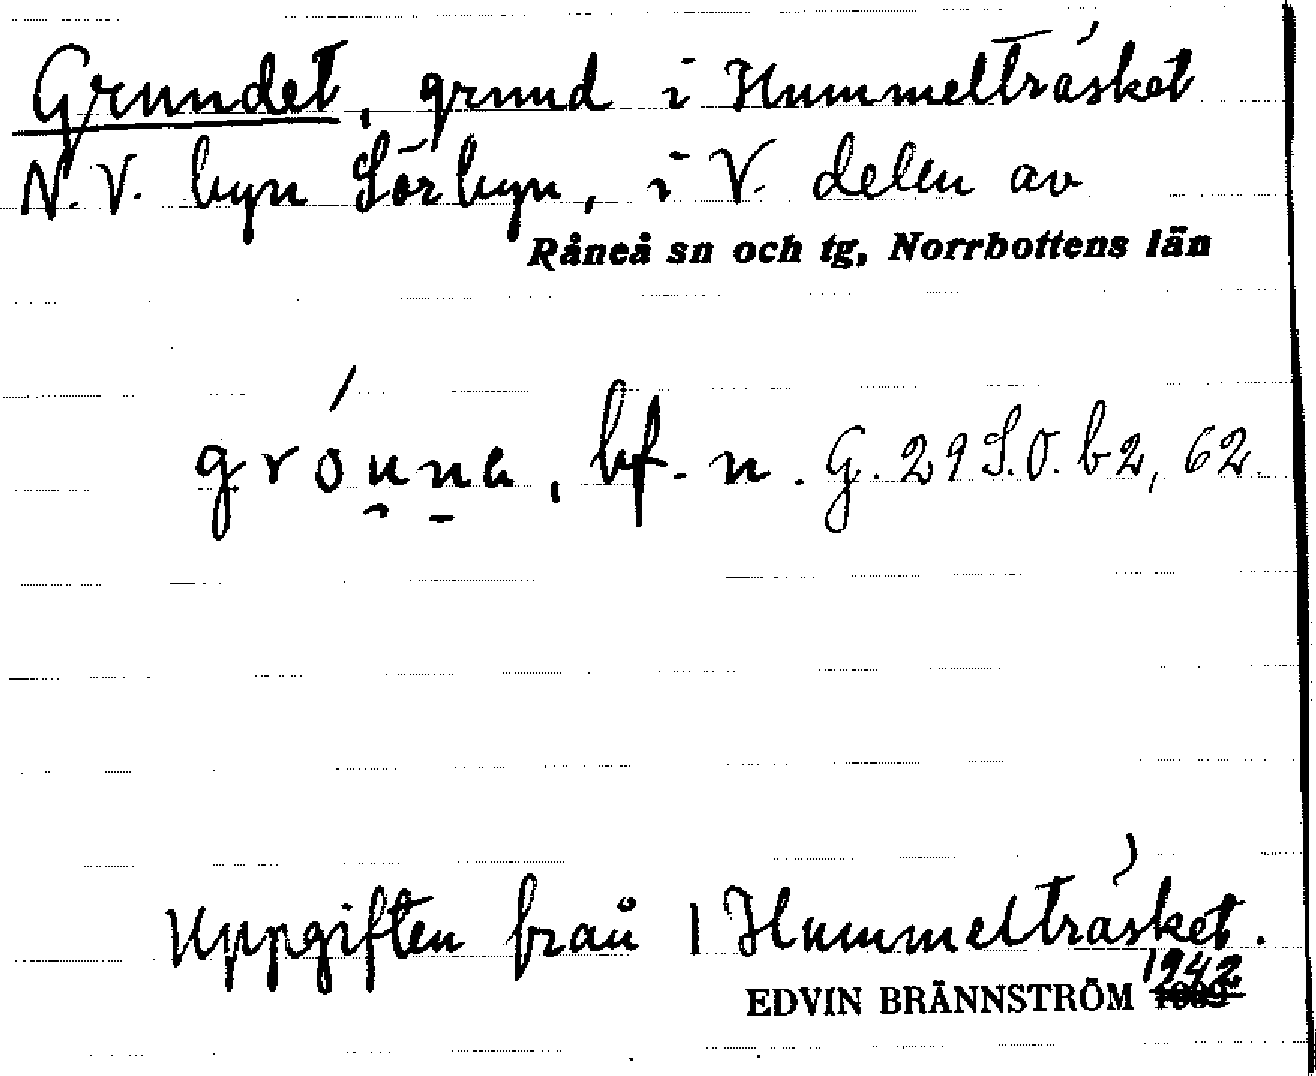 Grundet, grund i Hummelträsket
N.V. byn Sörbyn, i V. delen av
Råneå sn och tg, Norrbottens län
gróu̯n̠a, bf. n. G. 29 S.O. b2, 62.
Uppgiften från 1 Hummelträsket.
EDVIN BRÄNNSTRÖM 1942